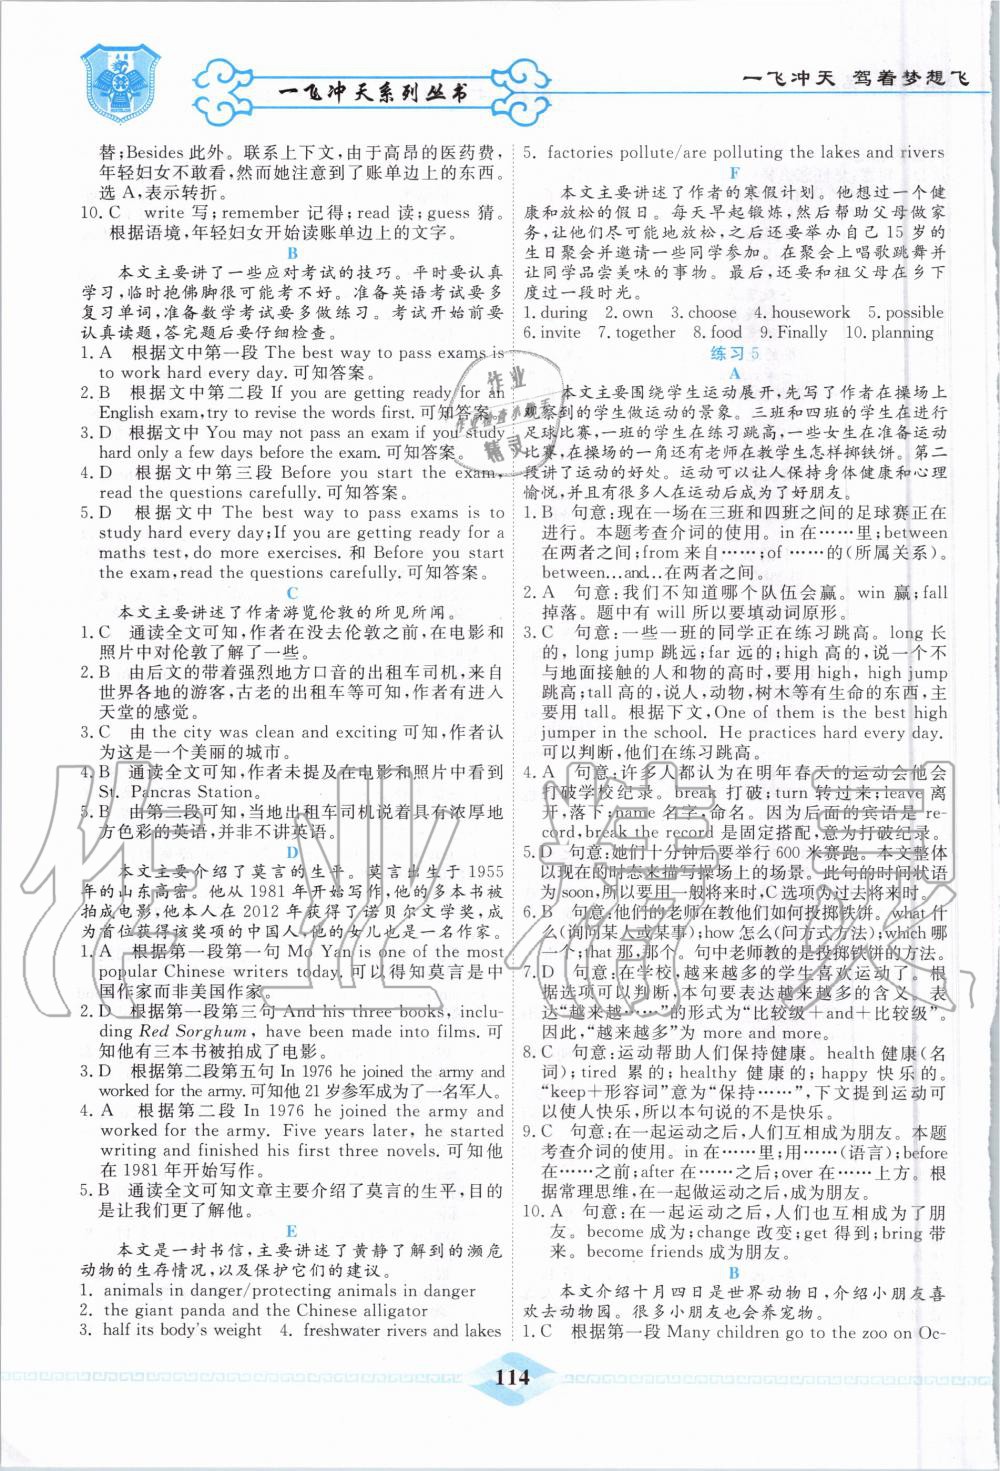 一飞冲天系列丛书
一飞冲天 驾着梦想飞
替;Besides 此外。联系上下文,由于高昂的医药费,
年轻妇女不敢看,然而她注意到了账单边上的东西。
选 A,表示转折。
10. C write 写;remember 记得;read 读;guess 猜。
根据语境,年轻妇女开始读账单边上的文字。
B
本文主要讲了一些应对考试的技巧。平时要认真
学习,临时抱佛脚很可能考不好。准备英语考试要多
复习单词,准备数学考试要多做练习。考试开始前要
认真读题,答完题后要仔细检查。
1. A 根据文中第一段 The best way to pass exams is
to work hard every day. 可知答案。
2. B 根据文中第二段 If you are getting ready for an
English exam,try to revise the words first. 可知答案。
3. D 根据文中 You may not pass an exam if you study
hard only a few days before the exam. 可知答案。
4. D 根据文中第三段 Before you start the exam,
read the questions carefully. 可知答案。
5. D 根据文中 The best way to pass exams is to
study hard every day;If you are getting ready for a
maths test, do more exercises. 和 Before you start
the exam,read the questions carefully. 可知答案。
C
本文主要讲述了作者游览伦敦的所见所闻。
1. C 通读全文可知,作者在没去伦敦之前,在电影和
照片中对伦敦了解了一些。
2. B 由后文的带着强烈地方口音的出租车司机,来自
世界各地的游客,古老的出租车等可知,作者有进入
天堂的感觉。
3. C 由 the city was clean and exciting 可知,作者认
为这是一个美丽的城市。
4. B 通读全文可知,作者未提及在电影和照片中看到
St. Pancras Station。
5. B 由第二段可知,当地出租车司机说着具有浓厚地
方色彩的英语,并非不讲英语。
D
本文主要介绍了莫言的生平。莫言出生于 1955
年的山东高密。他从 1981 年开始写作,他的多本书被
拍成电影,他本人在 2012 年获得了诺贝尔文学奖,成
为首位获得该奖项的中国人,他的女儿也是一名作家。
1. A 根据第一段第一句 Mo Yan is one of the most
popular Chinese writers today. 可以得知莫言是中
国作家而非美国作家。
2. D 根据第一段第三句 And his three books, inclu-
ding Red Sorghum, have been made into films. 可
知他有三本书被拍成了电影。
3. D 根据第二段第五句 In 1976 he joined the army and
worked for the army. 可知他 21 岁参军成为了一名军人。
4. A 根据第二段 In 1976 he joined the army and
worked for the army. Five years later, he started
writing and finished his first three novels. 可知他
在 1981 年开始写作。
5. B 通读全文可知文章主要介绍了莫言的生平,目的
是让我们更了解他。
E
本文是一封书信,主要讲述了黄静了解到的濒危
动物的生存情况,以及保护它们的建议。
1. animals in danger/protecting animals in danger
2. the giant panda and the Chinese alligator
3. half its body's weight 4. freshwater rivers and lakes
5. factories pollute/are polluting the lakes and rivers
F
本文主要讲述了作者的寒假计划。他想过一个健
康和放松的假日。每天早起锻炼,然后帮助父母做家
务,让他们尽可能地放松,然后还要举办自己 15 岁的
生日聚会并邀请一些同学参加。在聚会上唱歌跳舞并
让同学品尝美味的事物。最后,还要和祖父母在乡下
度过一段时光。
1. during 2. own 3. choose 4. housework 5. possible
6. invite 7. together 8. food 9. Finally 10. planning
练习 5
A
本文主要围绕学生运动展开,先写了作者在操场上
观察到的学生做运动的景象。三班和四班的学生在进行
足球比赛,一班的学生在练习跳高,一些女生在准备运动
赛,在操场的一角还有老师在教学生怎样掷铁饼。第二
段讲了运动的好处。运动可以让人保持身体健康和心理
愉悦,并且有很多人在运动后成为了好朋友。
1. B 句意:现在一场在三班和四班之间的足球赛正在
进行。本题考查介词的使用。in 在……里;between
在两者之间;from 来自……;of ……的(所属关系)。
between...and...在两者之间。
2. A 句意:我们不知道哪个队伍会赢。win 赢;fall
掉落。题中有 will 所以要填动词原形。
3. C 句意:一些一班的同学正在练习跳高。long 长
的,long jump 跳远;far 远的;high 高的,说一个不
与地面接触的人和物的高度时,要用 high,high jump
跳高;tall 高的,说人,动物,树木等有生命的东西,主
要用 tall。根据下文,One of them is the best high
jumper in the school. He practices hard every day.
可以判断,他们在练习跳高。
4. A 句意:许多人都认为在明年春天的运动会他会
打破学校纪录。break 打破;turn 转过来;leave 离
开,落下;name 名字,命名。因为后面的宾语是rec-
ord,break the record 是固定搭配,意为打破纪录。
5. D 句意:她们十分钟后要举行 600 米赛跑。本文整体
以现在的时态来描写操场上的场景。此句的时间状语
为soon,所以要用一般将来时,C选项为过去将来时。
6. B 句意:他们的老师在教他们如何投掷铁饼。what 什
么(询问某人或某事);how怎么(问方式方法);which 哪
一个;that 那,那个。句中老师教的是投掷铁饼的方法。
7. D 句意:在学校,越来越多的学生喜欢运动了。根
据选项可以判断,本句要表达越来越多的含义。表
达“越来越……”的形式为“比较级+and+比较级”。
因此,“越来越多”为 more and more。
8. C 句意:运动帮助人们保持健康。health 健康(名
词);tired 累的;healthy 健康的;happy 快乐的。
“keep+形容词”意为“保持……”,下文提到运动可
以使人快乐,所以本句说的不是快乐。
9. C 句意:在一起运动之后,人们互相成为朋友。本题
考查介词的使用。in在……里;用……(语言);before
在……之前;after 在……之后;over 在……上方。根
据常理思维,在一起做运动之后,人们可以变成朋友。
10. A 句意:在一起运动之后,人们也互相成为了朋
友。become 成为;change 改变;get 得到;bring 带
来。become friends 成为朋友。
B
本文介绍十月四日是世界动物日,介绍小朋友喜
欢去动物园。很多小朋友也会养宠物。
1. C 根据第一段 Many children go to the zoo on Oc-
114